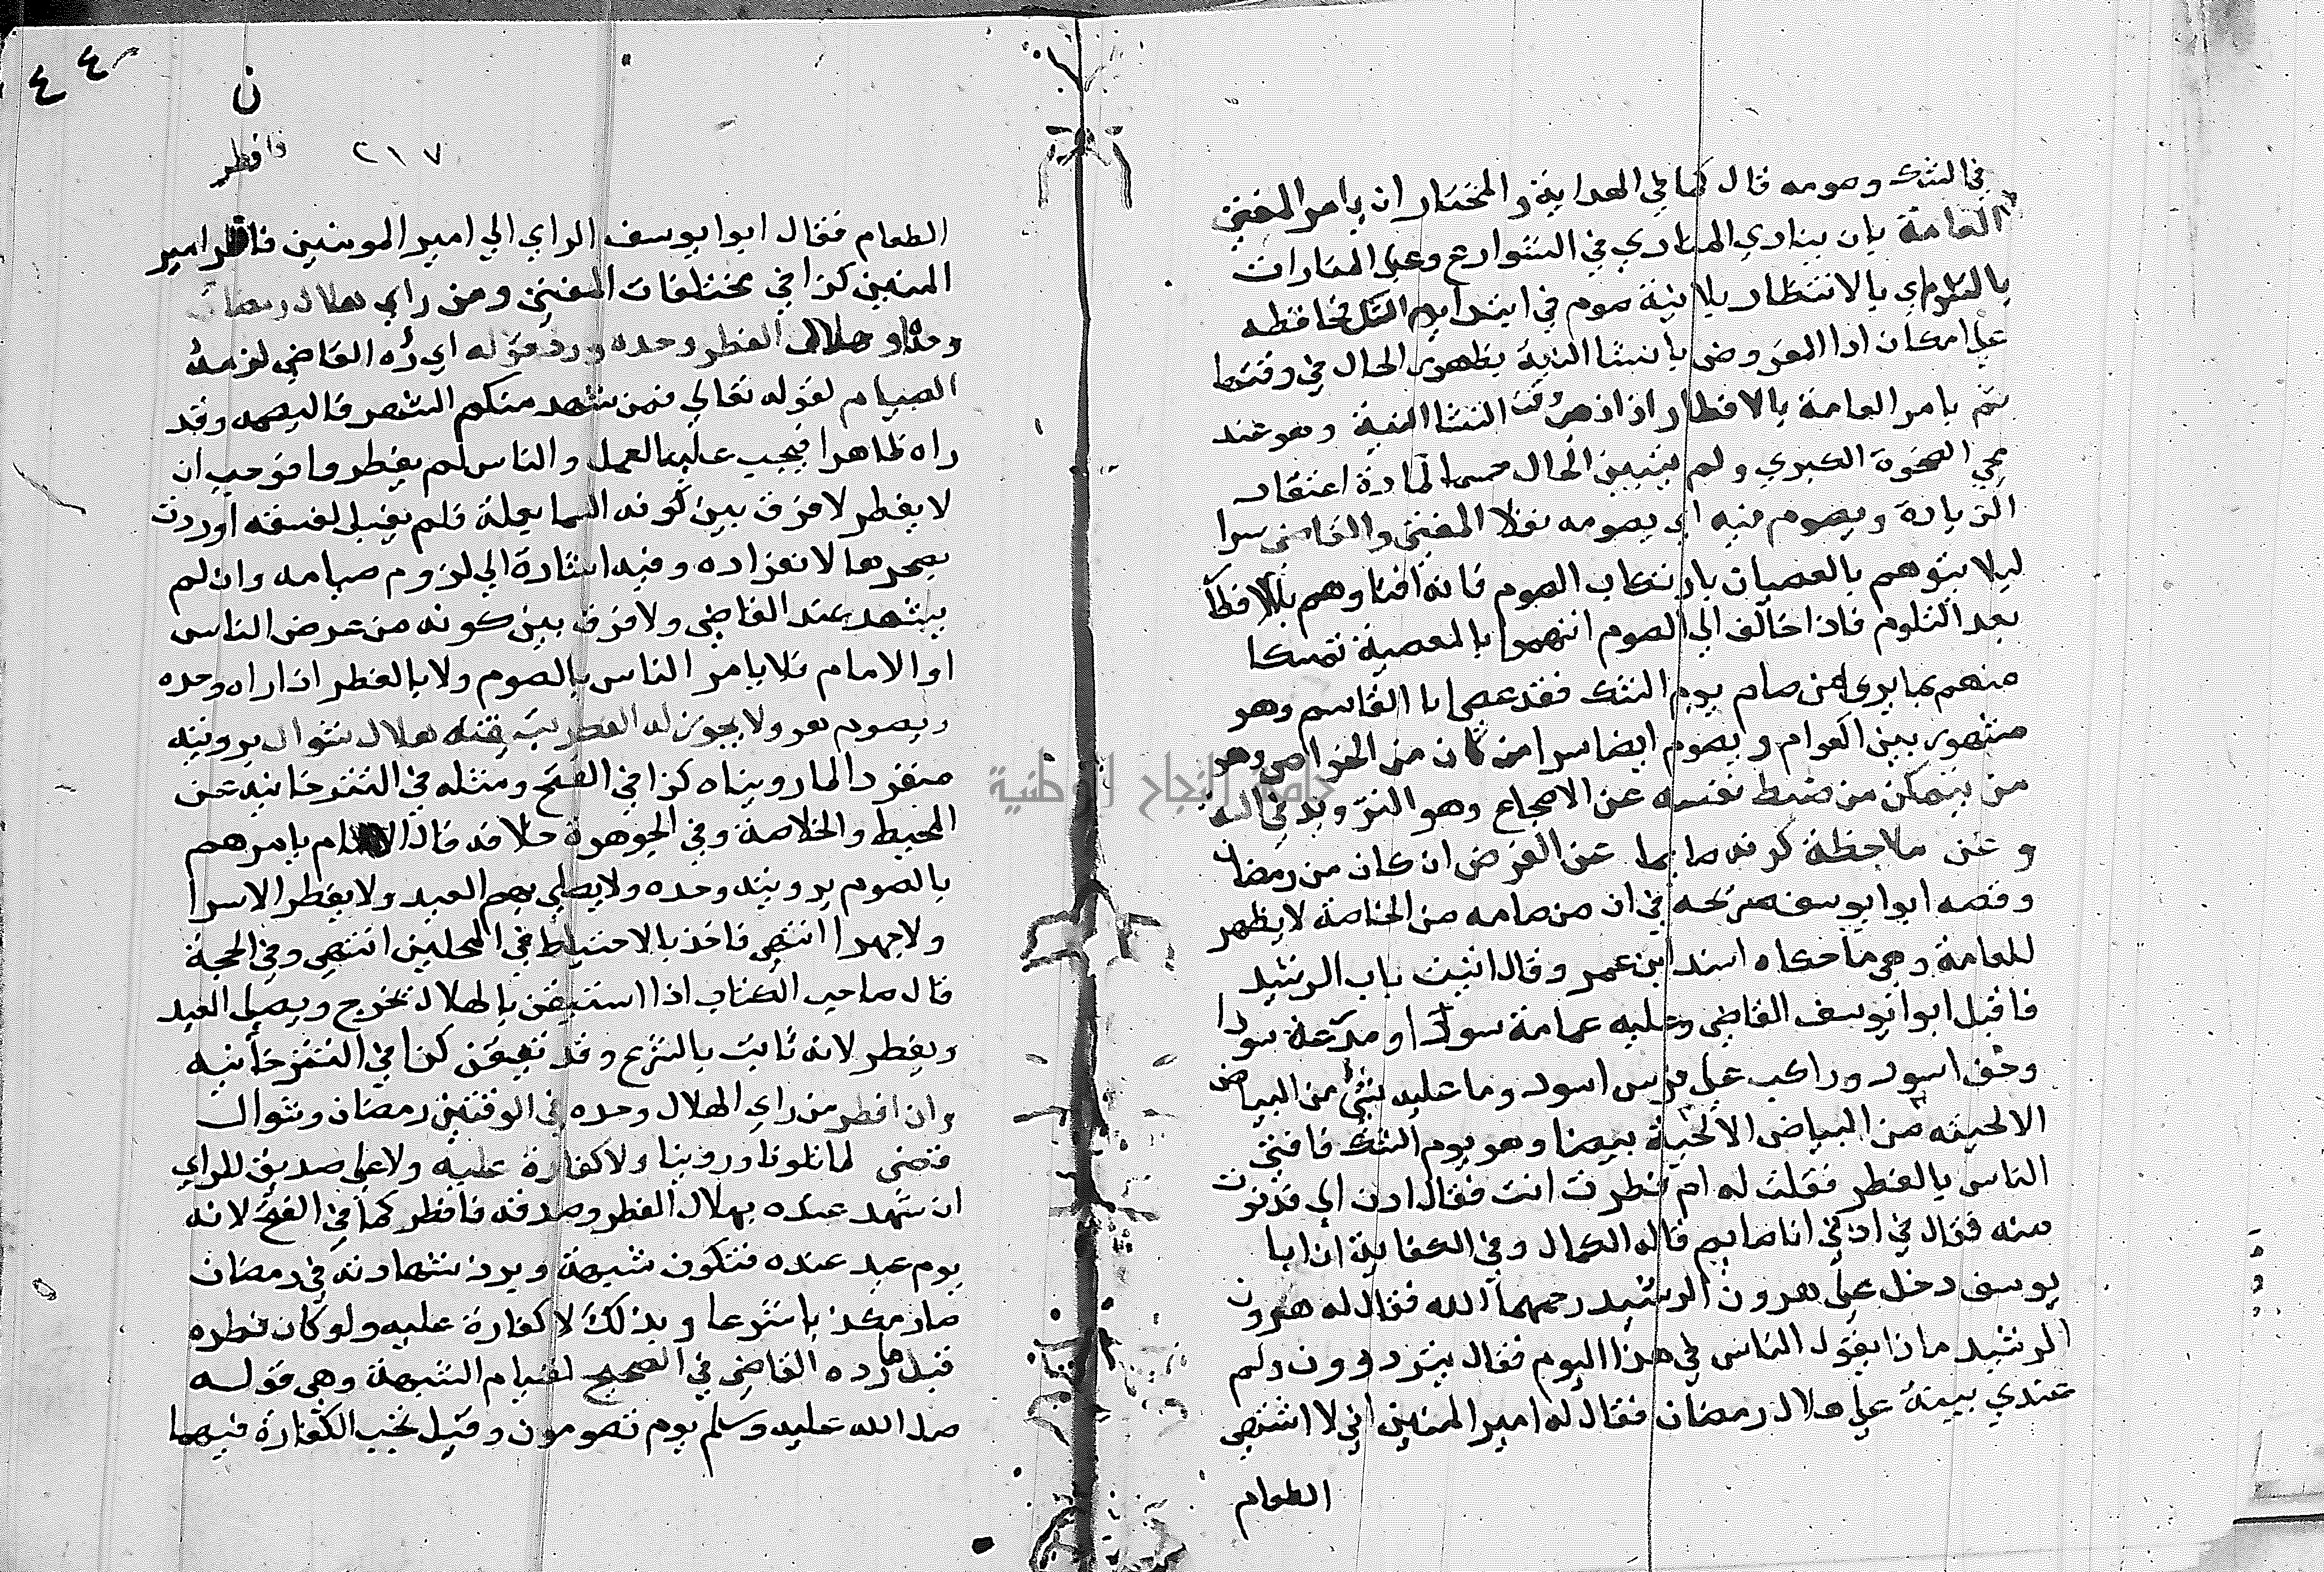 في الشك وصومه قال كما في الهداية والمختار ان يامر المفتي
العامة بان ينادي المنادي في الشوارع وعلي المنارات
بالتلوم اي بالانتظار بلا نية صوم في ابتدا يوم الشك محافظه
علي امكان ادا الفروض بانشا النية بظهور الحال في وقتها
ثم يامر العامة بالافطار اذا ذهب وقت انشا النية وهو عند
مجي الضحوة الكبري ولم يتبين الحال حسما لمادة اعتقاد
الزيادة ويصوم فيه اي يصومه نفلا المفتي والقاضي سرا
ليلا يتوهم بالعصيان بارتكاب الصوم فانه افتاوهم بالافطا
بعد التلوم فاذا خالف الي الصوم اتهموا بالمعصية تمسكا
منهم بما يروي من صام يوم الشك فقد عصي ابا القاسم وهو
مشهور بين العوام ويصوم ايضا سرا من كان من الخواص وهو
من يتمكن من ضبط نفسه عن الاضجاع وهو التردد في النية
وعن ملاحظة كونه صايما عن الفرض ان كان من رمضان
وقصه ابوا يوسف صريحه في ان من صامه من الخاصة لا يظهر
للعامة وهي ما حكاه اسد ابن عمر وقال اتيت باب الرشيد
فاقبل ابوا يوسف القاضي وعليه عمامة سودا ومدرعة سودا
وخف اسود وراكب علي فرس اسود وما عليه شيء من البياض
الا لحيته من البياض الا لحية بيضا وهو يوم الشك فافتي
الناس بالفطر فقلت له ام فطرت انت فقال ادن الي فدنوت
منه فقال في اذني انا صايم قاله الكمال وفي الكفاية ان ابا
يوسف دخل علي هرون الرشيد رحمهما الله فقال له هرون
الرشيد ماذا يقول الناس في هذا اليوم فقال يترددون ولم
عندي بينة علي هلال رمضان فقال له امير المنين اني لا اشتهي
الطعام
٤٤
ن
٢١٧ فافطر
الطعام فقال ابوا يوسف الراي الي امير المومنين فافطر امير
المنين كذا في مختلفات المفتي ومن راي هلال رمضان
وحده او هلال الفطر وحده ورد قوله اي رده القاضي لزمه
الصيام لقوله تعالي فمن شهد منكم الشهر فاليصمه وقد
راه ظاهرا فيجب عليه العمل والناس لم يفطروا فوجب ان
لا يفطر لا فرق بين كونه السما بعلة فلم يقبل لفسقه او ردت
بصحوها لانفراده وفيه اشارة الي لزوم صيامه وان لم
يشهد عند القاضي ولا فرق بين كونه من عرض الناس
او الامام فلا يامر الناس بالصوم ولا بالفطر اذا راه وحده
ويصوم هو ولا يجوز له الفطر بتيقنه هلال شوال برويته
منفردا لما رويناه كذا في الفتح ومثله في التترخانيه عن
المحيط والخلاصة وفي الجوهرة خلافه قال الامام يامرهم
بالصوم برويته وحده ولا يصلي بهم العيد ولا يفطر لا سرا
ولا جهرا انتهي فاخذ بالاحتياط في المحلين انتهي وفي الحجة
قال صاحب الكتاب اذا استيقن بالهلال يخرج ويصلي العيد
ويفطر لانه ثابت بالشرع وقد تيقن كذا في التترخانيه
وان افطر من راي الهلال وحده في الوقتين رمضان وشوال
قضي لما تلونا وروينا ولا كفارة عليه ولا علي صديق للراي
ان شهد عنده بهلال الفطر وصدقه فافطر كما في الفتح لانه
يوم عيد عنده فتكون شبهة وبرد شهادته في رمضان
صار مكذبا شرعا وبذلك لا كفارة عليه ولو كان فطره
قبل ما رده القاضي في الصحيح لقيام الشبهة وهي قوله
صلي الله عليه وسلم يوم تصومون وقيل تجب الكفارة فيهما
جامعة النجاح الوطنية